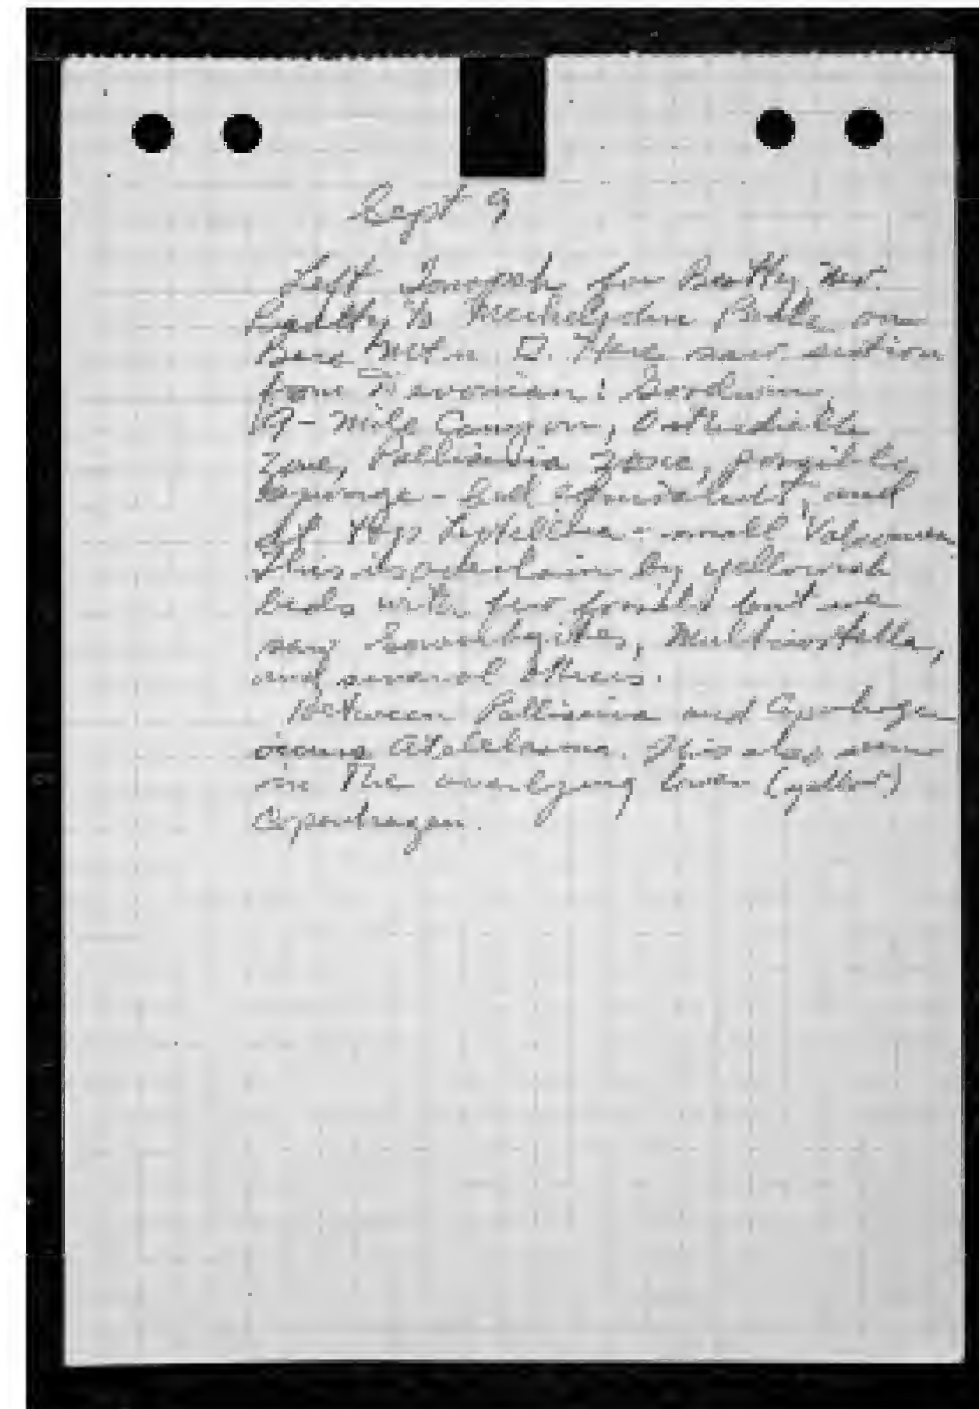 Sept 9
Left Tonopah for Beatty, Nev.
Beatty to Meiklejohn Peak on
Bare Mtn. Q. Here saw section
from Devonian: Goodwin,
9-mile Canyon, Orthidiella
zone, Palliseria zone, possible
sponge - bed and
at top - small Valcourea
This is overlain by yellowish
beds with few fossils but we
saw Sowerbyites, Multicostella,
and several others.
Between Palliseria and Copenhagen
occurs Atelelasma. This also seen
in the overlying lower (yellow)
Copenhagen.